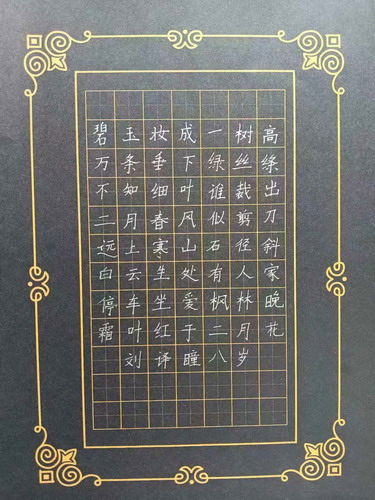 碧玉妆成一树高
万条垂下绿丝绦
不知细叶谁裁出
二月春风似剪刀
远上寒山石径斜
白云生处有人家
停车坐爱枫林晚
霜叶红于二月花
刘译瞳八岁